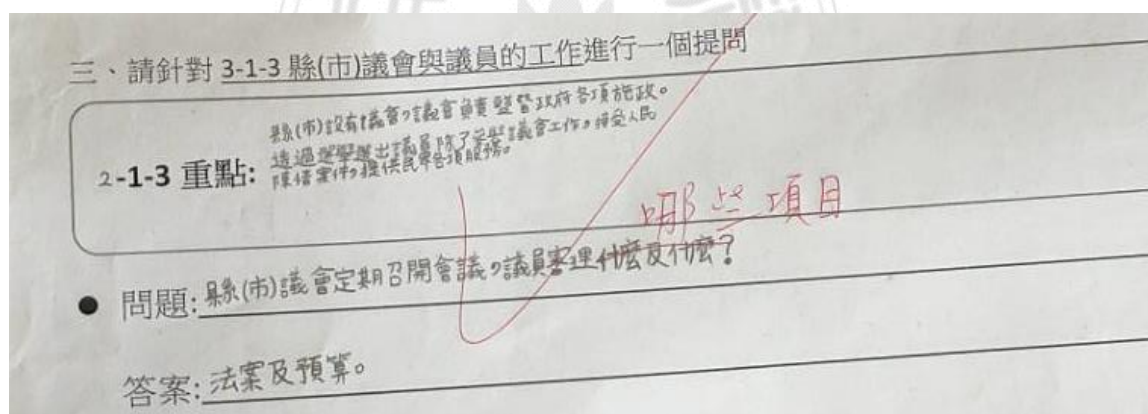 三、請針對 3-1-3 縣(市)議會與議員的工作進行一個提問
縣(市)設有議會,議會負責監督政府各項施政。
2-1-3 重點: 透過選舉選出議員除了議會工作,接受人民
陳情案件,提供民眾各項服務。
哪些項目
● 問題: 縣(市)議會定期召開會議,議員審理什麼及什麼?
答案: 法案及預算。